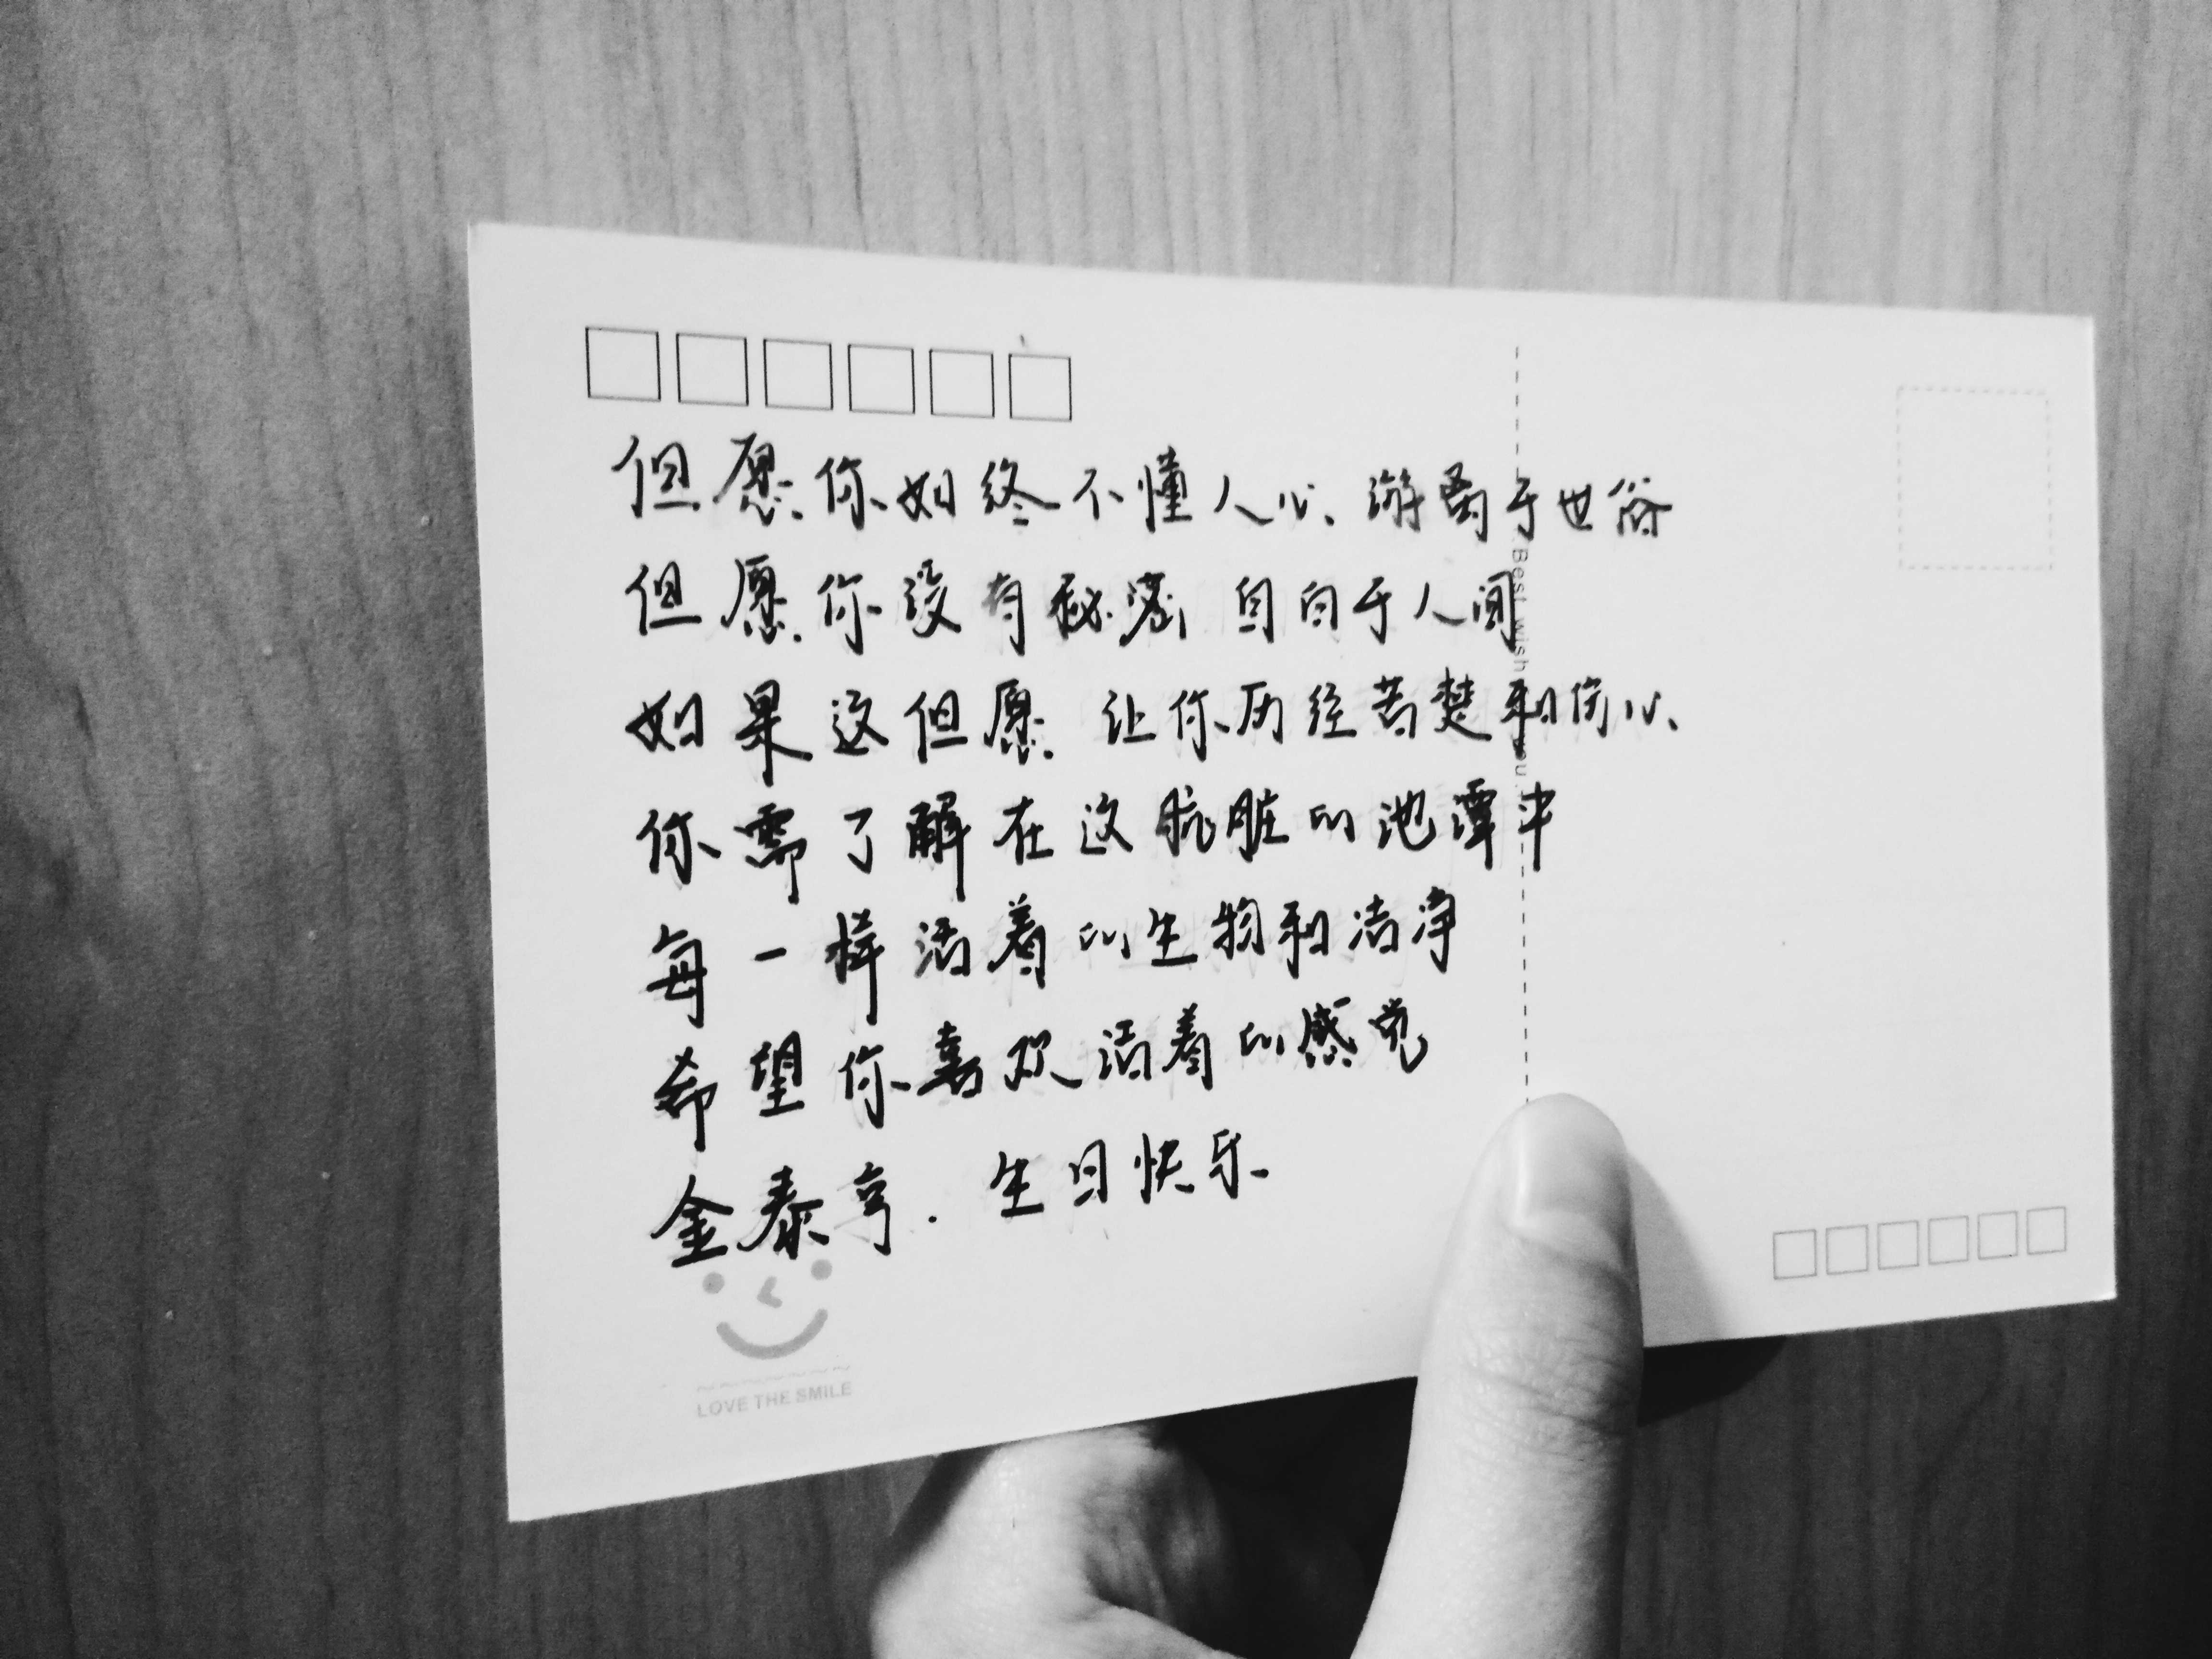 但愿你如终不懂人心 游离于世俗
但愿你没有秘密 自白于人间
如果这但愿 让你历经苦楚和伤心
你需了解在这肮脏的池潭中
每一样活着的生物和洁净
希望你喜欢活着的感觉
金泰亨. 生日快乐
Best wish you
LOVE THE SMILE